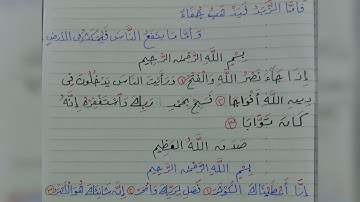 فَأَمَّا الزَّبَدُ فَيَذْهَبُ جُفَاءً
وَأَمَّا مَا يَنفَعُ النَّاسَ فَيَمْكُثُ فِي الأَرْضِ
بِسْمِ اللَّهِ الرَّحْمَنِ الرَّحِيمِ
إِذَا جَاءَ نَصْرُ اللَّهِ وَالْفَتْحُ ① وَرَأَيْتَ النَّاسَ يَدْخُلُونَ فِي
دِينِ اللَّهِ أَفْوَاجًا ② فَسَبِّحْ بِحَمْدِ رَبِّكَ وَاسْتَغْفِرْهُ إِنَّهُ
كَانَ تَوَّابًا ③
صَدَقَ اللَّهُ الْعَظِيمُ
بِسْمِ اللَّهِ الرَّحْمَنِ الرَّحِيمِ
إِنَّا أَعْطَيْنَاكَ الْكَوْثَرَ ① فَصَلِّ لِرَبِّكَ وَانْحَرْ ② إِنَّ شَانِئَكَ هُوَ الْأَبْتَرُ ③